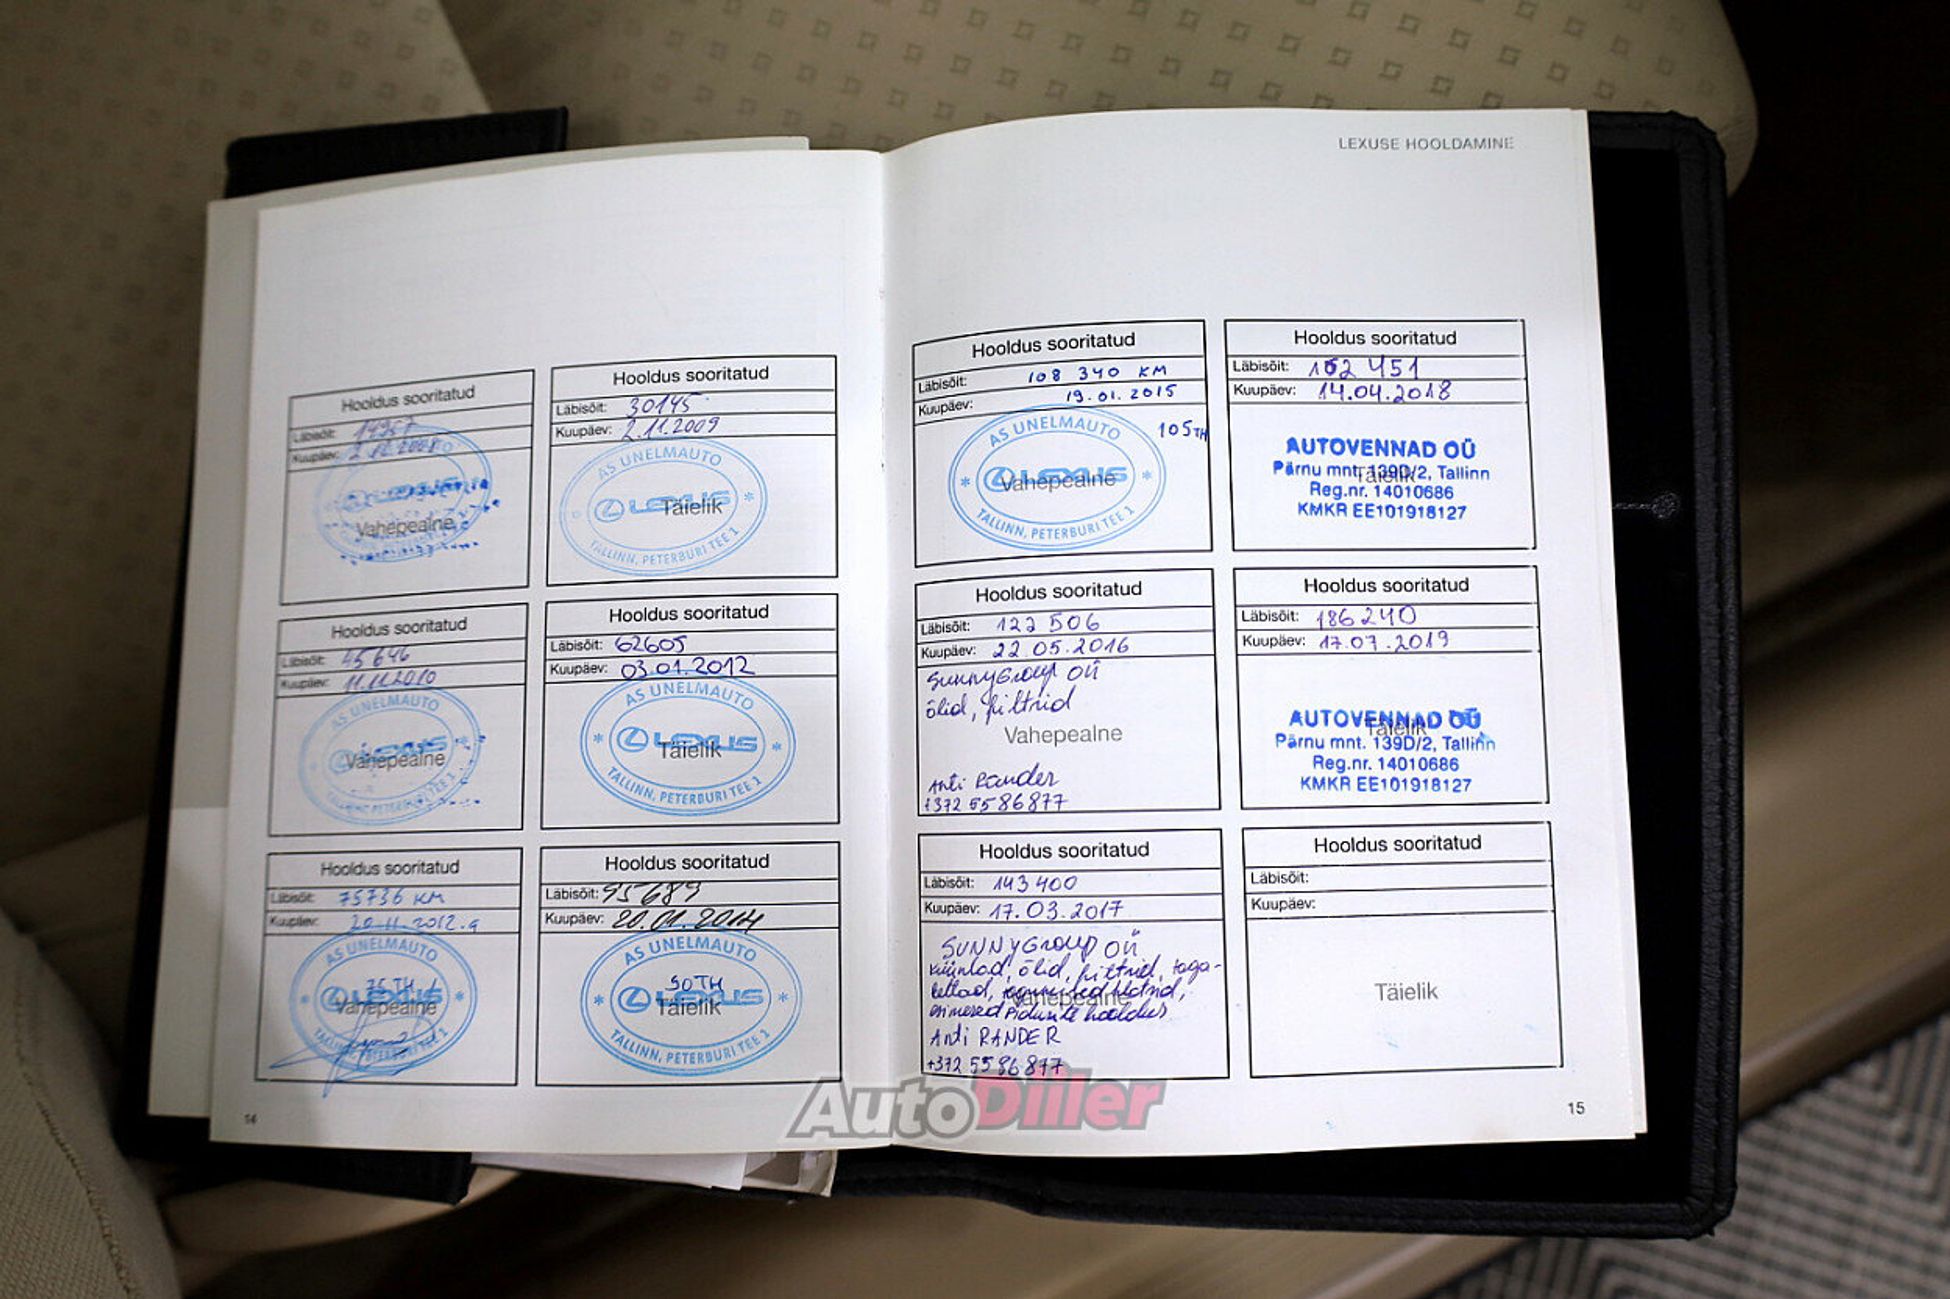 Hooldus sooritatud
Läbisõit:
Kuupäev:
Vahepealne
Hooldus sooritatud
Läbisõit: 30145
Kuupäev: 2.11.2009
AS UNELMAUTO
LEXUS
Täielik
TALLINN, PETERBURI TEE 1
Hooldus sooritatud
Läbisõit: 45646
Kuupäev: 11.11.2010
AS UNELMAUTO
Vahepealne
TALLINN, PETERBURI TEE 1
Hooldus sooritatud
Läbisõit: 62605
Kuupäev: 03.01.2012
AS UNELMAUTO
LEXUS
Täielik
TALLINN, PETERBURI TEE 1
Hooldus sooritatud
Läbisõit: 75736 KM
Kuupäev: 20.11.2012.a
AS UNELMAUTO
75TH
LEXUS
Vahepealne
TALLINN, PETERBURI TEE 1
Hooldus sooritatud
Läbisõit: 95689
Kuupäev: 20.01.2014
AS UNELMAUTO
90TH
LEXUS
Täielik
TALLINN, PETERBURI TEE 1
14
LEXUSE HOOLDAMINE
Hooldus sooritatud
Läbisõit: 108 340 KM
Kuupäev: 19.01.2015
105TH
AS UNELMAUTO
LEXUS
Vahepealne
TALLINN, PETERBURI TEE 1
Hooldus sooritatud
Läbisõit: 162 451
Kuupäev: 14.04.2018
AUTOVENNAD OÜ
Pärnu mnt. 139D/2, Tallinn
Täielik
Reg.nr. 14010686
KMKR EE101918127
Hooldus sooritatud
Läbisõit: 122 506
Kuupäev: 22.05.2016
SunnyGroup OÜ
õlid, filtrid
Vahepealne
Anti Rander
+372 5586877
Hooldus sooritatud
Läbisõit: 186240
Kuupäev: 17.07.2019
AUTOVENNAD OÜ
Täielik
Pärnu mnt. 139D/2, Tallinn
Reg.nr. 14010686
KMKR EE101918127
Hooldus sooritatud
Läbisõit: 143400
Kuupäev: 17.03.2017
SUNNYGroup OÜ
küünlad, õlid, filtrid, taga-
kettad,
Vahepealne
esimesed pidurite hooldus
Anti RANDER
+372 5586877
Hooldus sooritatud
Läbisõit:
Kuupäev:
Täielik
15
AutoDiller